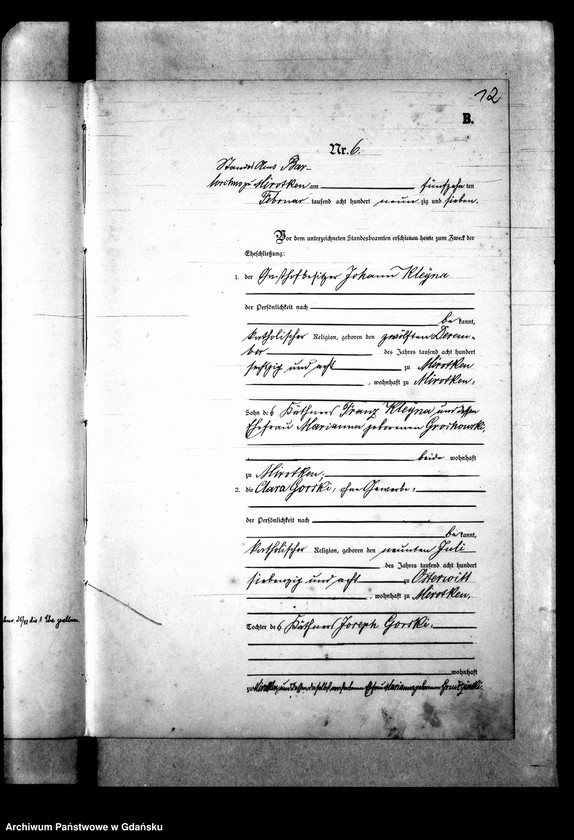 12
B.
Nr. 6.
Standes Amt Bar-
zu Mirotken am fünfzehn ten
Februar tausend acht hundert neun zig und sieben.
Vor dem unterzeichneten Standesbeamten erschienen heute zum Zweck der
Eheschließung:
1. der Gasthofbesitzer Johann Kleyna
der Persönlichkeit nach
be kannt,
katholischer Religion, geboren den zwölften Dezem-
ber des Jahres tausend acht hundert
sechzig und acht zu Mirotken
, wohnhaft zu Mirotken,
Sohn des Käthners Franz Kleyna und dessen
Ehefrau Marianna geborenen
beide wohnhaft
zu Mirotken,
2. die Clara Gorski, ohne Gewerbe,
der Persönlichkeit nach
be kannt,
katholischer Religion, geboren den neunten Juli
des Jahres tausend acht hundert
siebenzig und acht zu Osterwitt
, wohnhaft zu Mirotken,
Tochter des Käthners Joseph Gorski,
wohnhaft
zu Mirotken, und Ehefrau Marianna geborenen
die Ehe
Archiwum Państwowe w Gdańsku